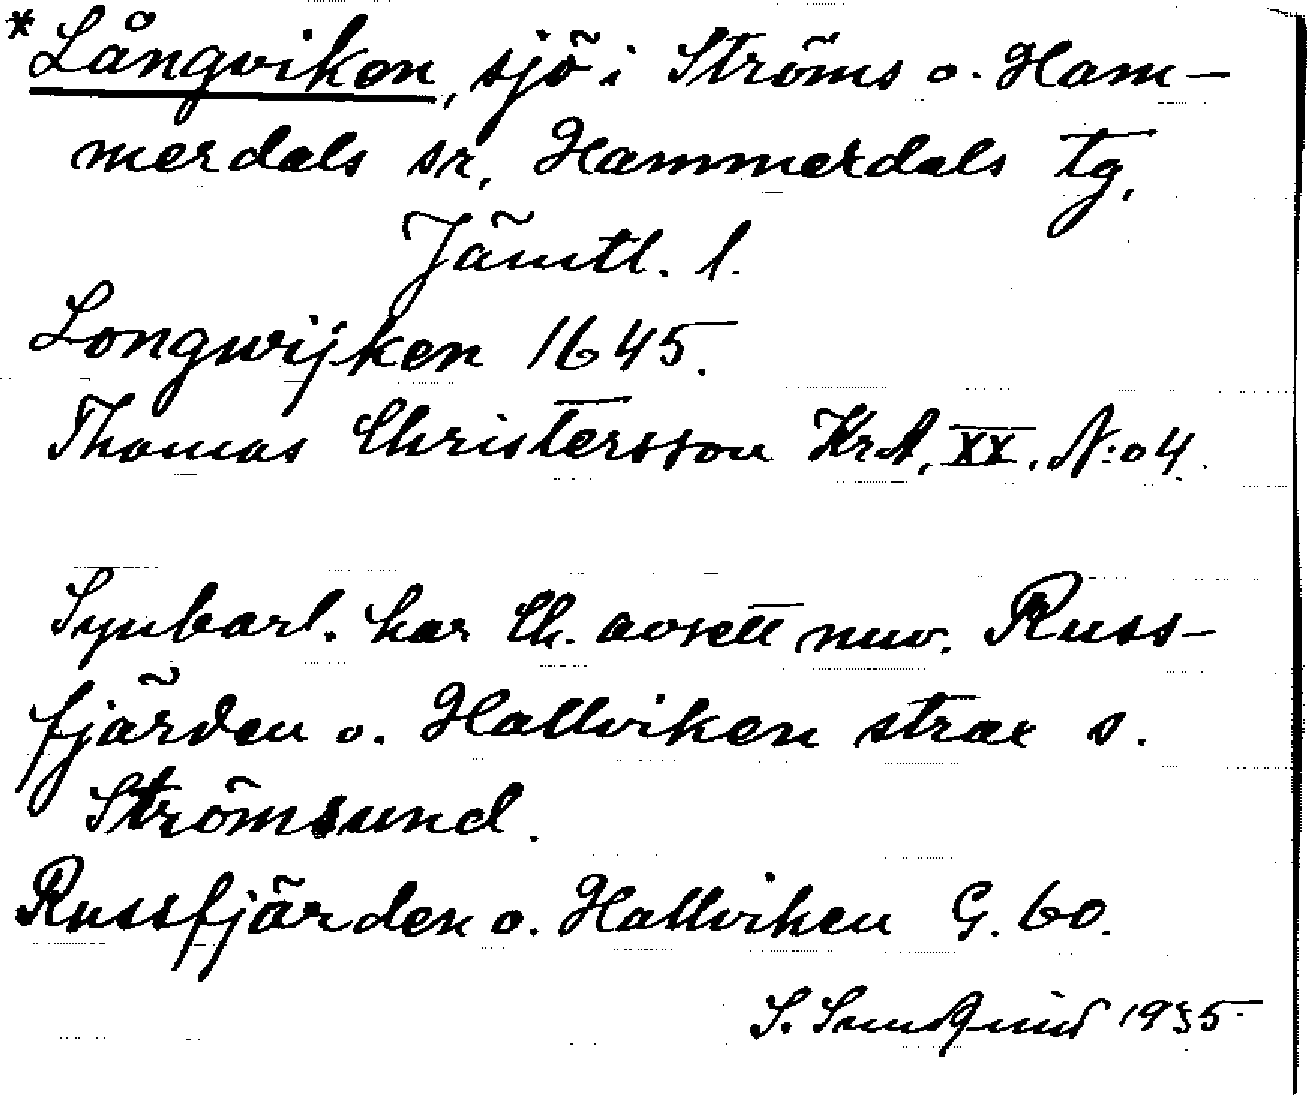 *Långviken, sjö i Ströms o. Ham-
merdals sr, Hammerdals tg,
Jämtl. l.
Longwijken 1645.
Thomas Christersson KrA, XX, N:o 4.
Synbarl. har Ch. avsett nuv. Russ-
fjärden o. Hallviken strax s.
Strömsund.
Russfjärden o. Hallviken G. 60.
S. Sundquist 1935